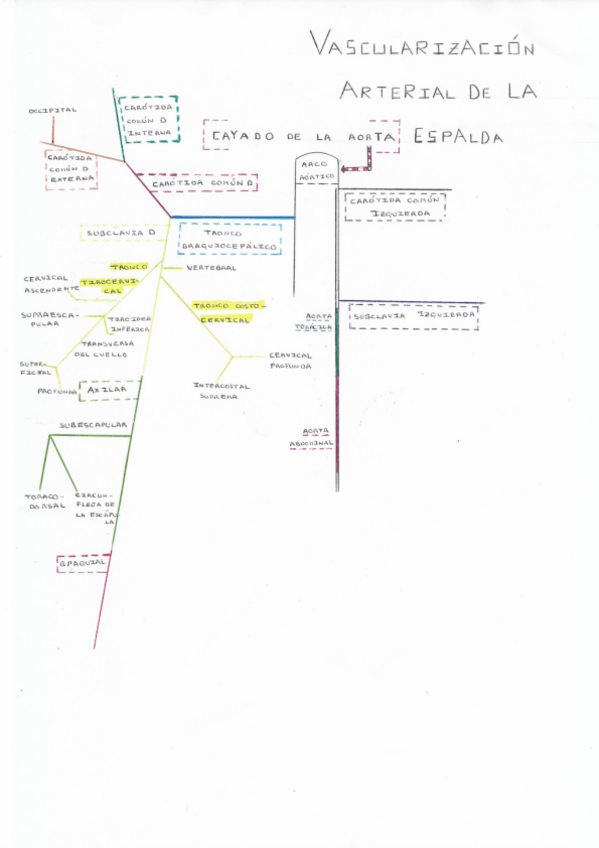 VASCULARIZACIÓN
ARTERIAL DE LA
ESPALDA
CAYADO DE LA AORTA
ARCO
AÓRTICO
OCCIPITAL
CARÓTIDA
COMÚN D
INTERNA
CARÓTIDA
COMÚN D
EXTERNA
CAROTIDA COMÚN D
CARÓTIDA COMÚN
IZQUIERDA
SUBCLAVIA D
TRONCO
BRAQUIOCEFÁLICO
TRONCO
TIROCERVI-
CAL
VERTEBRAL
CERVICAL
ASCENDENTE
TRONCO COSTO-
CERVICAL
SUPRAESCA-
PULAR
TIROIDEA
INFERIOR
AORTA
TORÁCICA
SUBCLAVIA IZQUIERDA
TRANSVERSA
DEL CUELLO
SUPER-
FICIAL
PROFUNDA
CERVICAL
PROFUNDA
INTERCOSTAL
SUPREMA
AXILAR
SUBESCAPULAR
AORTA
ABDOMINAL
TORACO-
DORSAL
CIRCUN-
FLEJA DE
LA ESCÁPU-
LA
BRAQUIAL